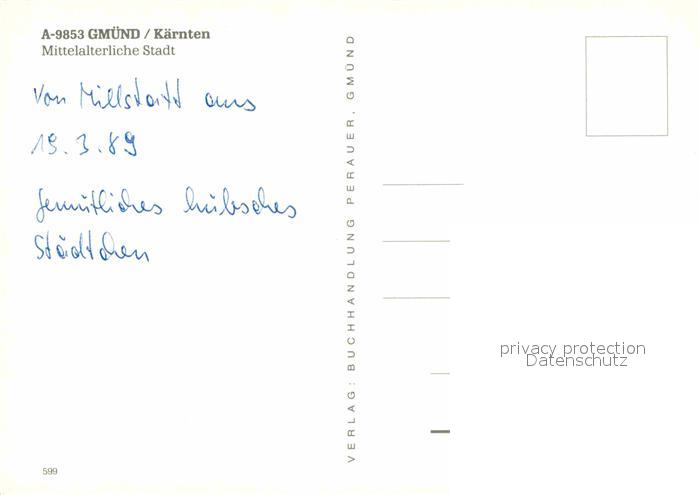 A-9853 GMÜND / Kärnten
Mittelalterliche Stadt
Von Millstatt aus
19.3.89
Gemütliches hübsches
Städtchen
VERLAG: BUCHHANDLUNG PERAUER, GMÜND
privacy protection
Datenschutz
599